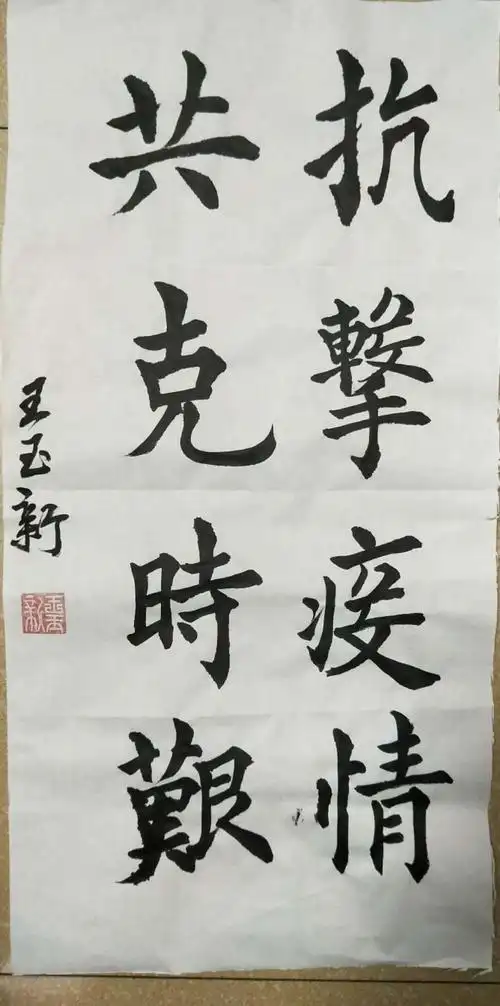 抗擊疫情
共克時艱
王玉新